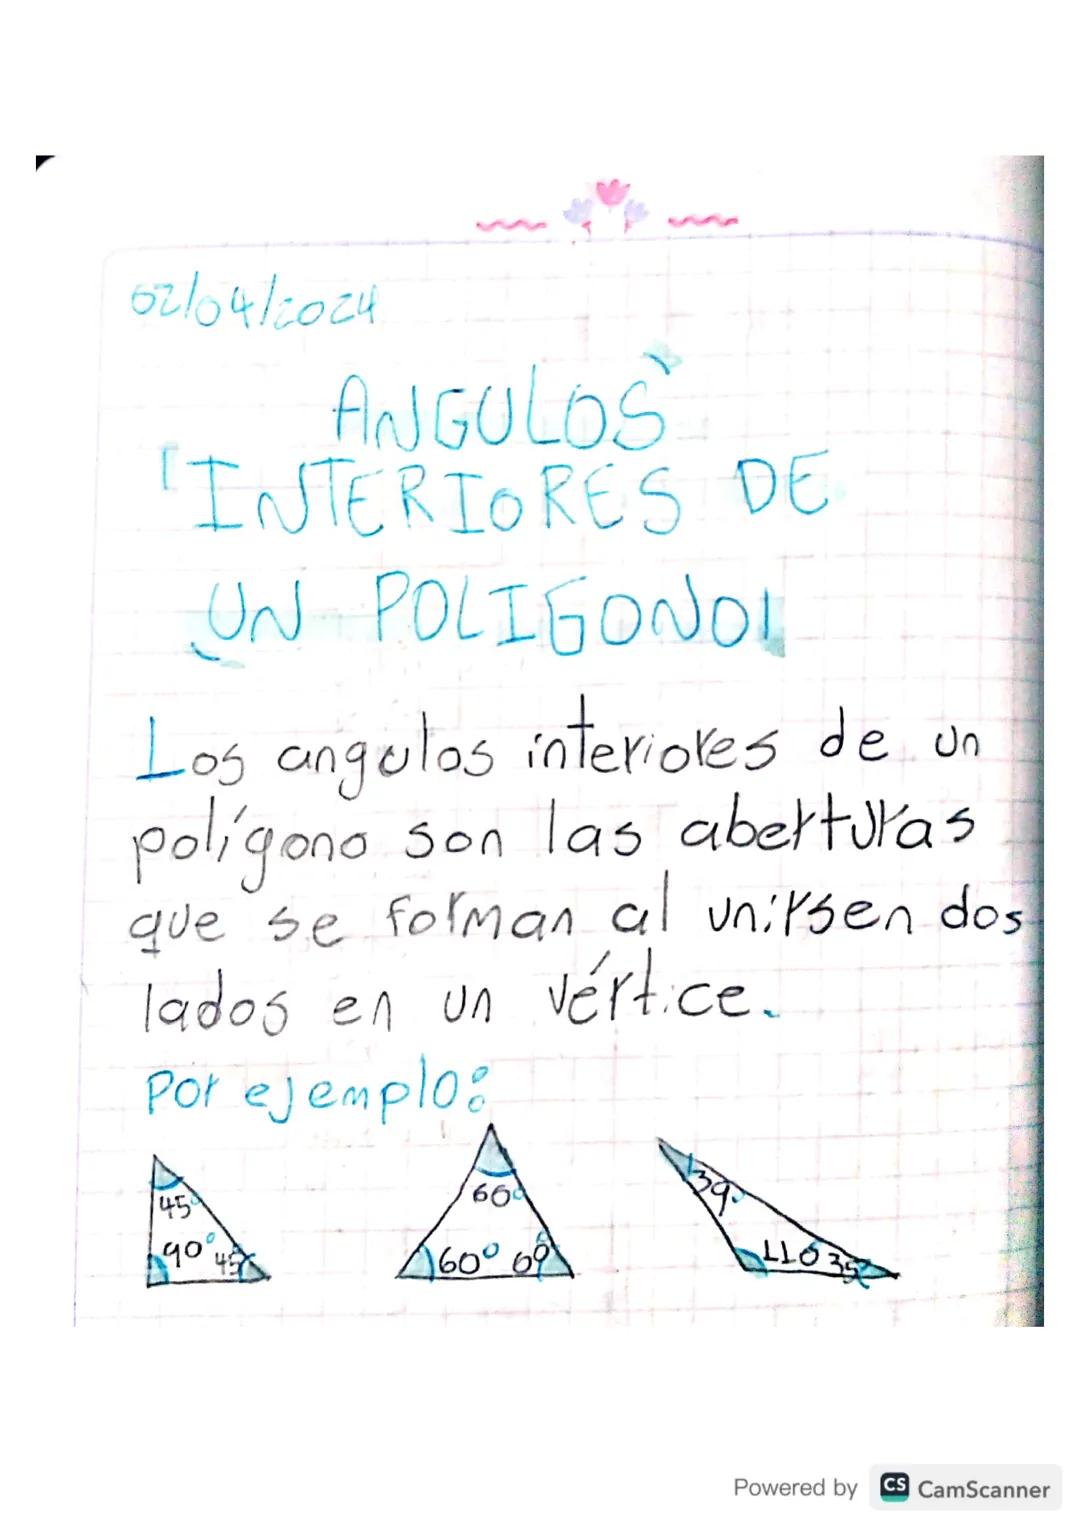 02/04/2024
ANGULOS
INTERIORES DE
UN POLIGONO
Los angulos interiores de un
polígono son las aberturas
que se forman al unirsen dos
lados en un vértice.
Por ejemplo:
45°
90° 45°
60°
60° 60°
39°
110 35°
Powered by CS CamScanner